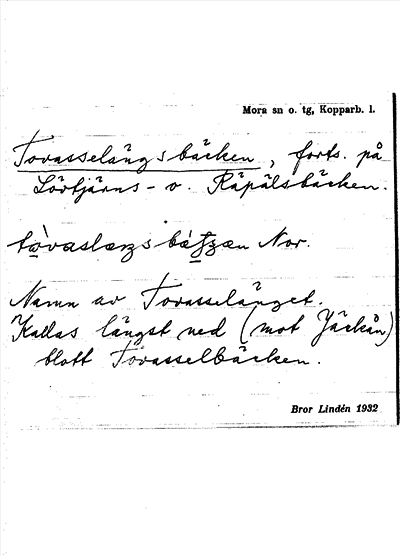 Mora sn o. tg, Kopparb. l.
Tovasselängsbäcken, forts. på
Lövtjärns- o. Räpälsbäcken.
Nor.
Namn av Tovasselänget.
Kallas längst ned (mot Jäckån)
blott Tovasselbäcken.
Bror Lindén 1932